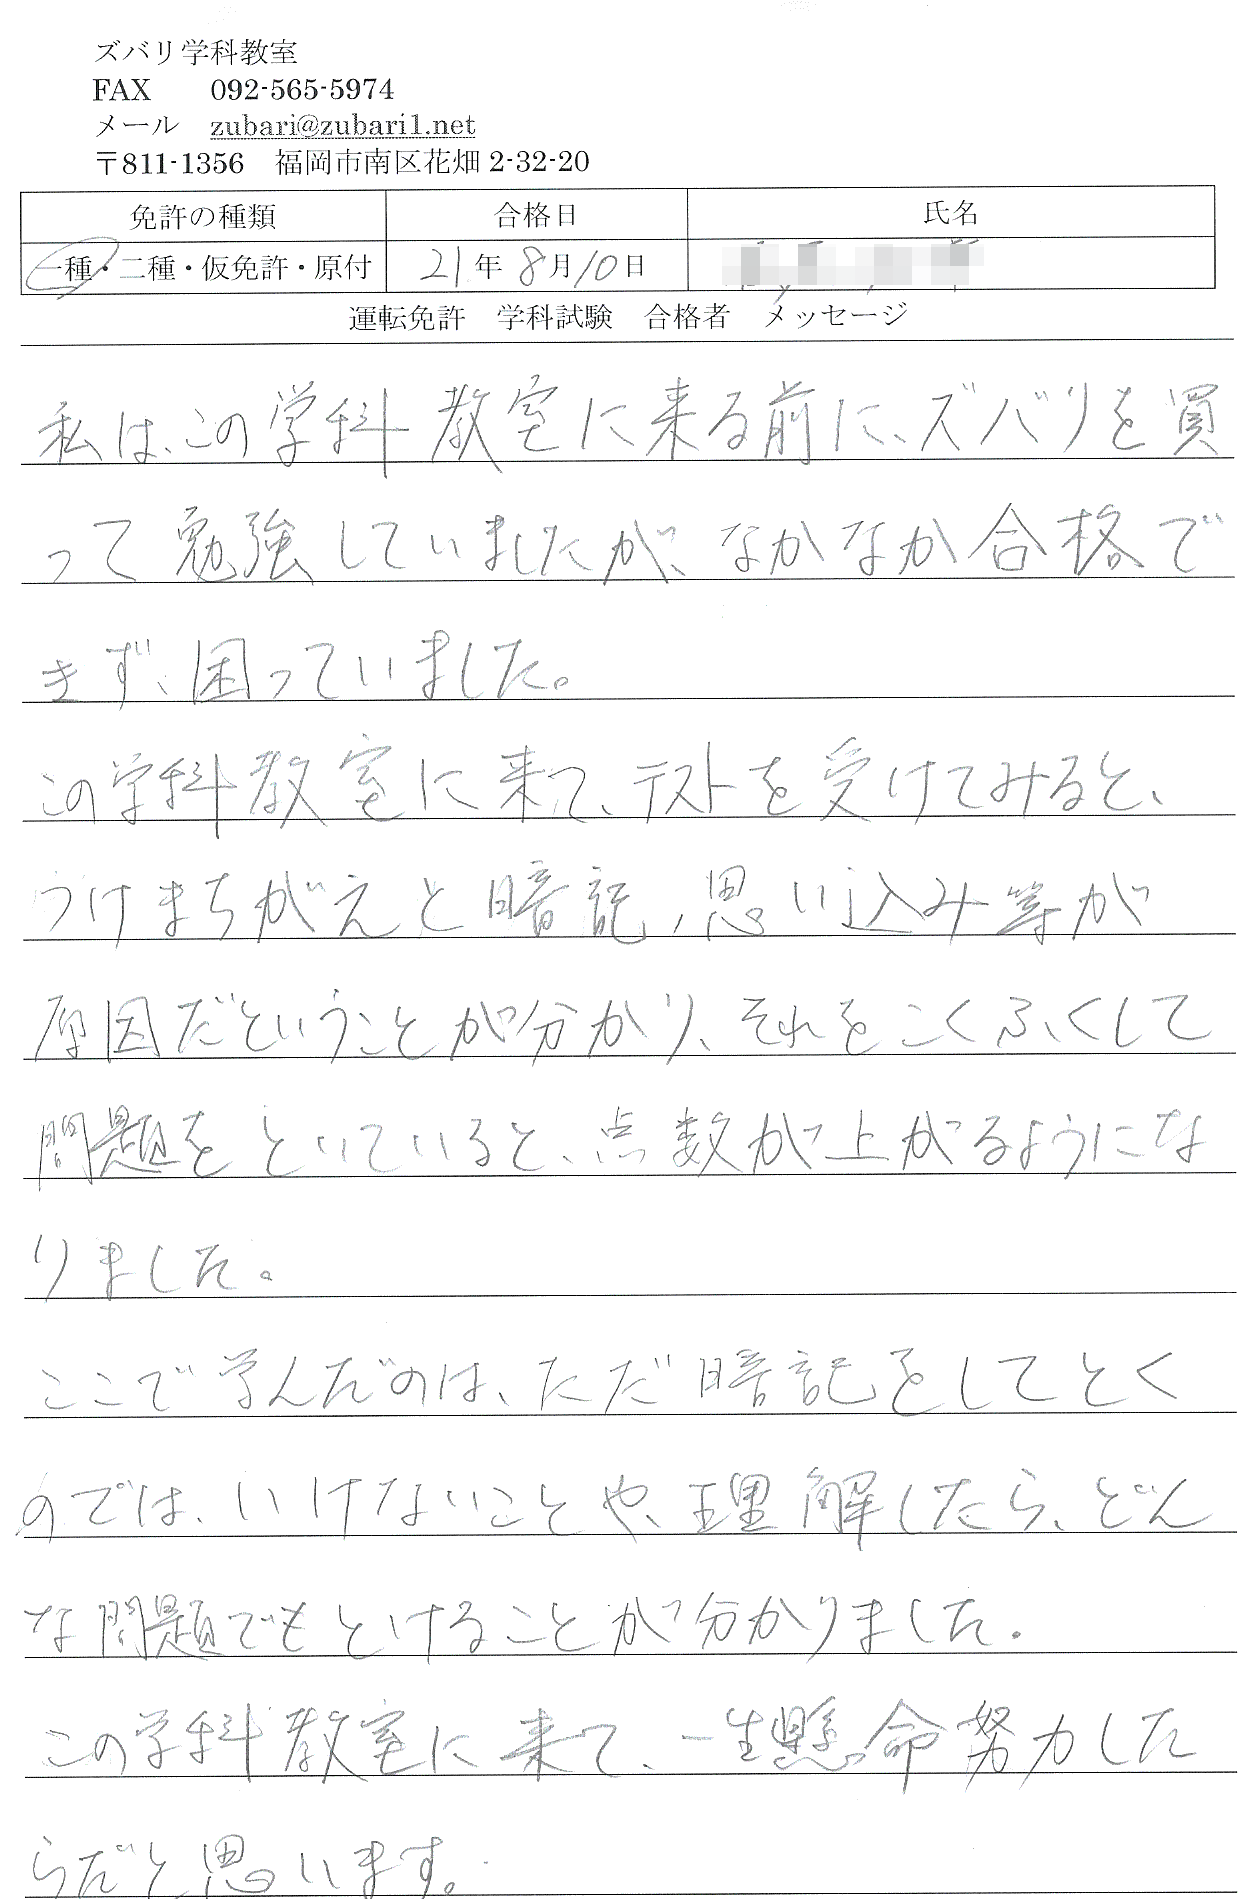 ズバリ学科教室
FAX 092-565-5974
メール zubari@zubari1.net
〒811-1356 福岡市南区花畑 2-32-20
免許の種類 合格日 氏名
一種・二種・仮免許・原付 21年 8月10日
運転免許 学科試験 合格者 メッセージ
私は、この学科教室に来る前に、ズバリを買
って勉強していましたが、なかなか合格で
きず、困っていました。
この学科教室に来て、テストを受けてみると、
うけまちがえと暗記、思い込み等が
原因だということが分かり、それをこくふくして
問題をといていると、点数が上がるようにな
りました。
ここで学んだのは、ただ暗記をしてとく
のでは、いけないことや、理解したら、どん
な問題でもとけることが分かりました。
この学科教室に来て、一生懸命努力した
らだと思います。